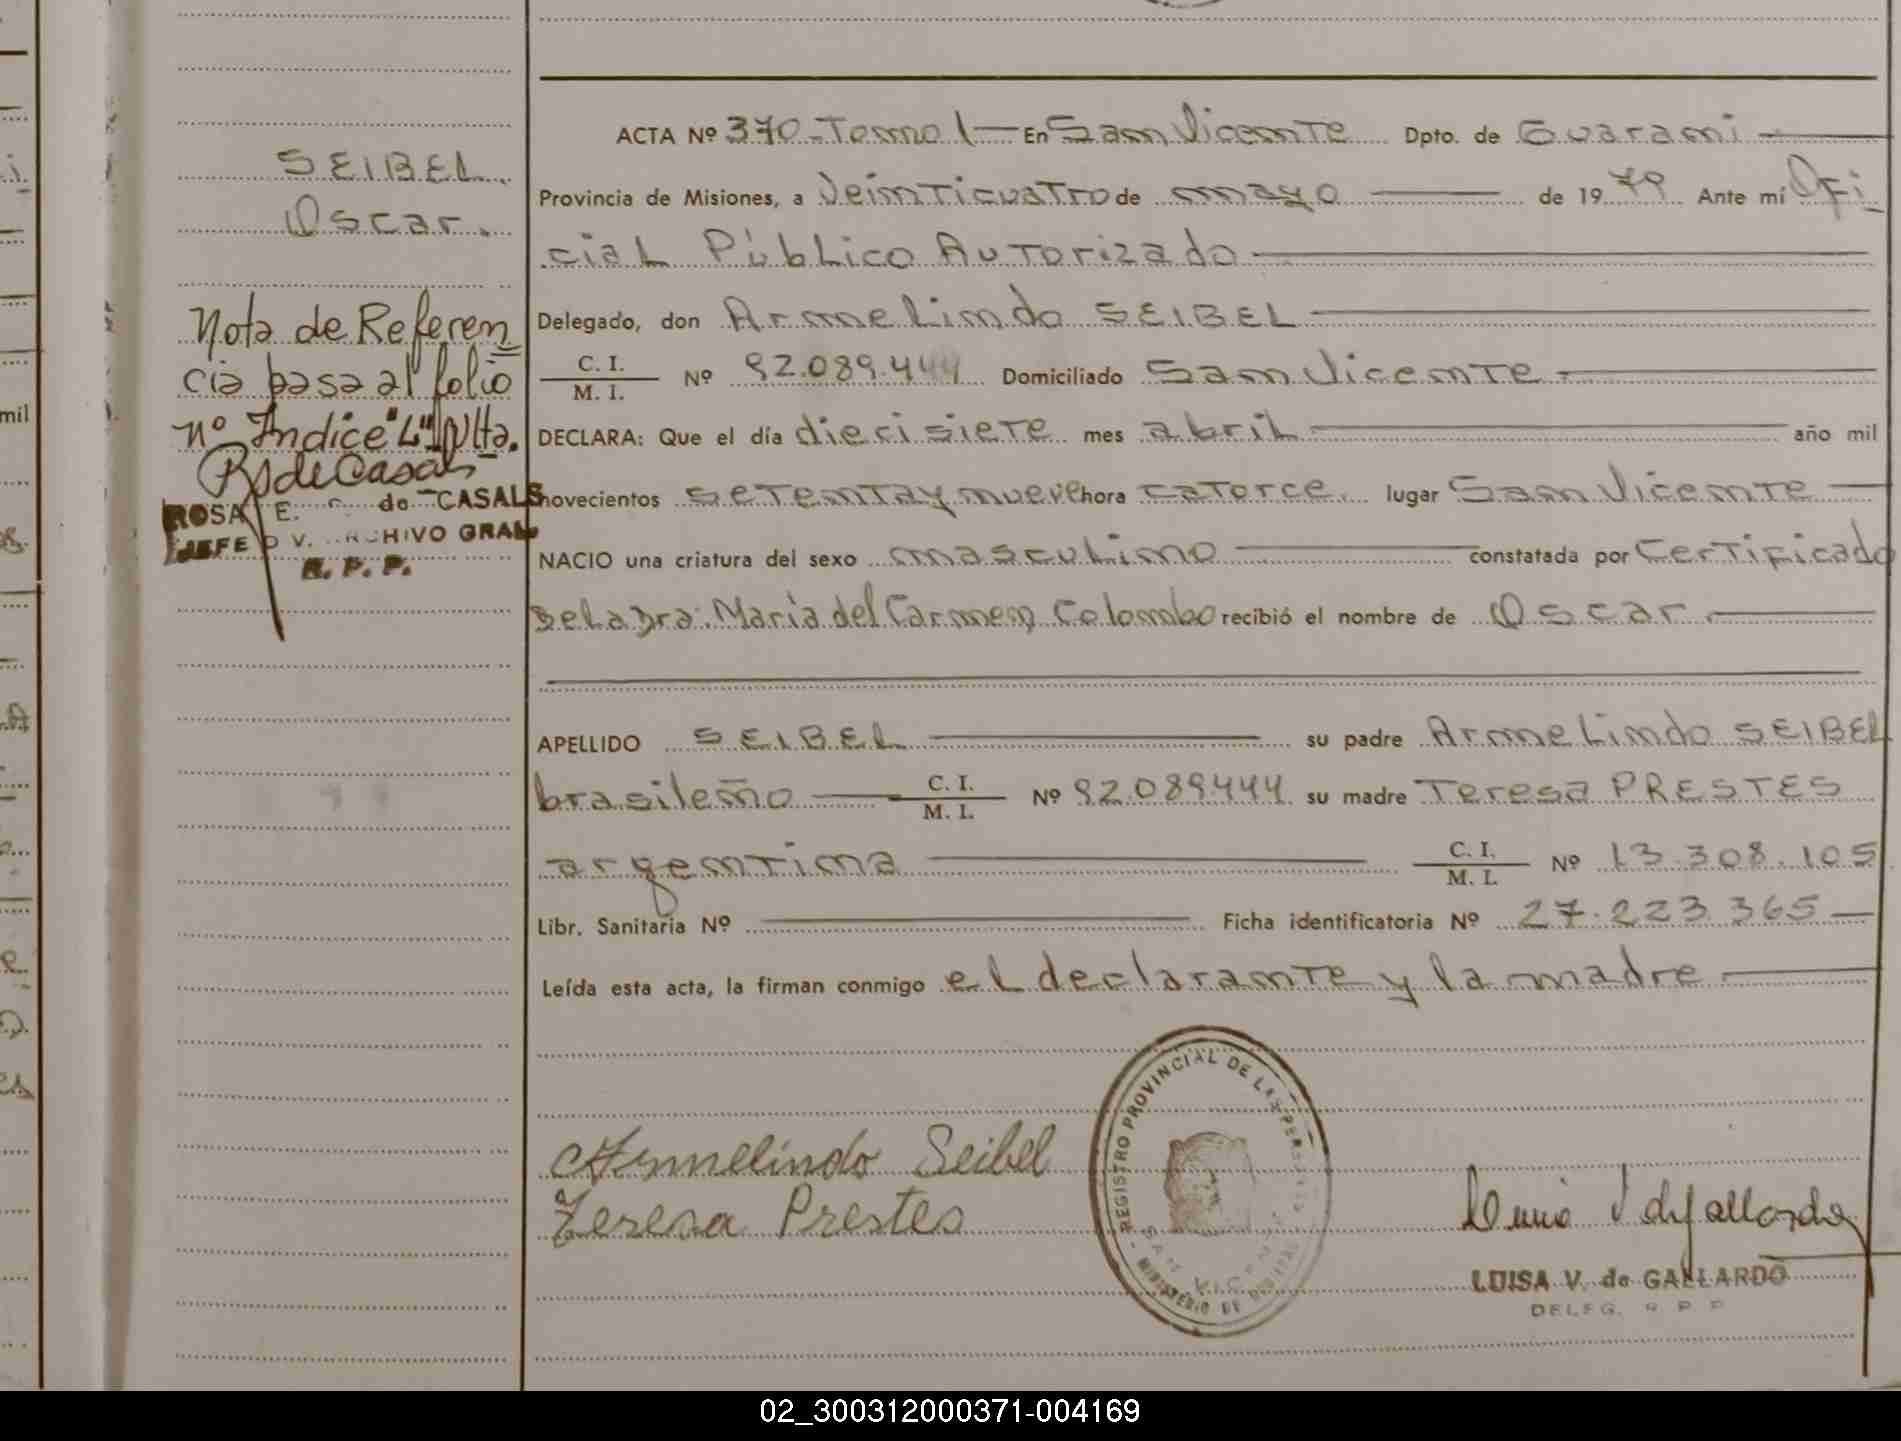 SEIBEL
Oscar.
Nota de Referen
cia pasa al folio
nº Indice "L" Alta.
RS de Casals
ROSA E. de CASALS
JEFE V. ARCHIVO GRAL
R. P. P.
ACTA Nº 370-Tomo I En San Vicente Dpto. de Guarani
Provincia de Misiones, a Veinticuatro de mayo de 1979 Ante mí Ofi
cial Público Autorizado
Delegado, don Armelindo SEIBEL
C. I.
M. I. Nº 92.089.444 Domiciliado San Vicente
DECLARA: Que el día diecisiete mes abril año mil
novecientos setentaynueve hora catorce lugar San Vicente
NACIO una criatura del sexo masculino constatada por Certificado
de la Dra. Maria del Carmen Colombo recibió el nombre de Oscar
APELLIDO SEIBEL su padre Armelindo SEIBEL
brasileño C. I.
M. I. Nº 92.089444 su madre Teresa PRESTES
argentina C. I.
M. I. Nº 13.308.105
Libr. Sanitaria Nº Ficha identificatoria Nº 27.223.365
Leída esta acta, la firman conmigo el declarante y la madre
Armelindo Seibel
Teresa Prestes
REGISTRO PROVINCIAL DE LAS PERSONAS
SAN VICENTE
MINISTERIO DE
LUISA V. de GALLARDO
DELEG. R P P
02_300312000371-004169